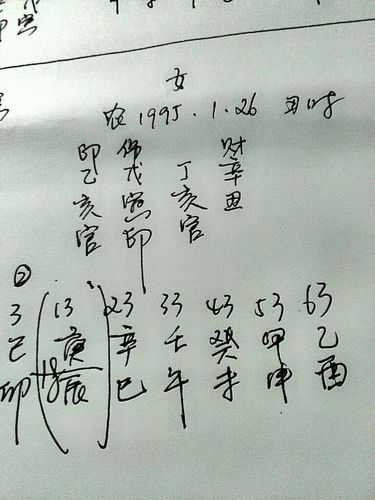 女
农1995.1.26 丑时
印 伤 财
乙 戊 丁 辛
亥 寅 亥 丑
官 印 官
②
3 (13) 23 33 43 53 63
己 庚 辛 壬 癸 甲 乙
卯 辰 巳 午 未 申 酉